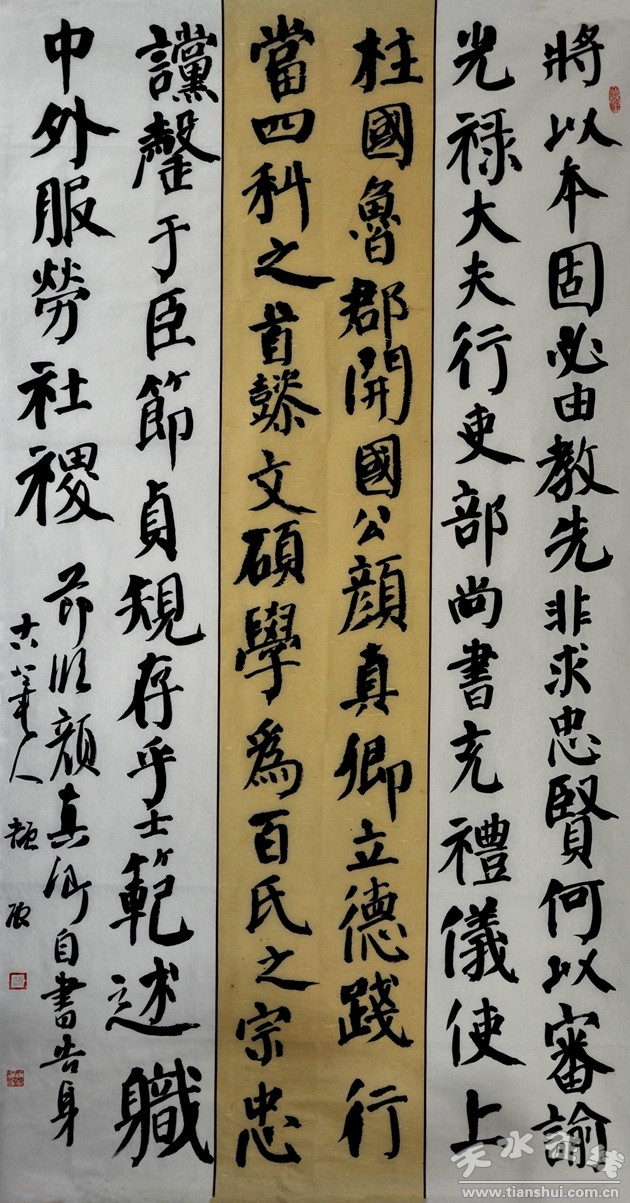 將以本固必由教先非求忠賢何以審諭
光禄大夫行吏部尚書充禮儀使上
柱國魯郡開國公顔真卿立德踐行
當四科之首懿文碩學爲百氏之宗忠
讜罄于臣節貞規存乎士範述職
中外服勞社稷
節臨顔真卿自書告身
天水在线
www.tianshui.com.cn